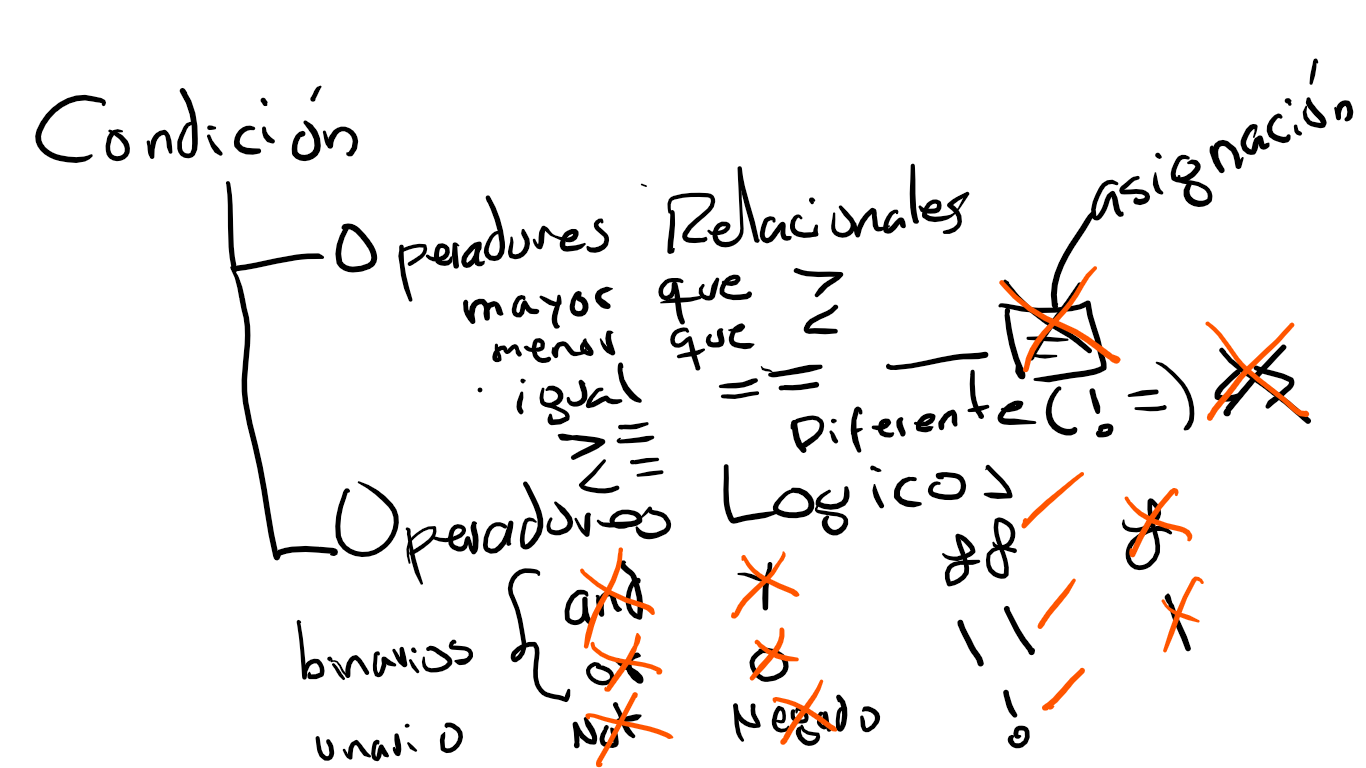 Condición
asignación
Operadores Relacionales
mayor que >
menor que <
igual == =
Diferente (!=)
>=
<=
Operadores Logicos
&& &
binarios and Y
or o || |
unario Not Negado !